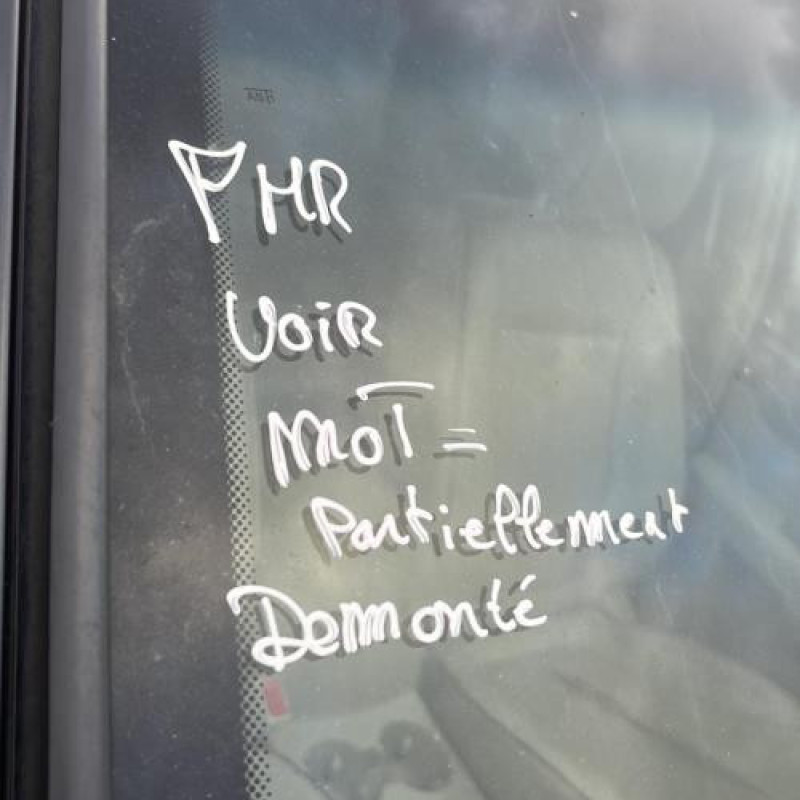 PHR
Voir
Mot =
Partiellement
Demonté